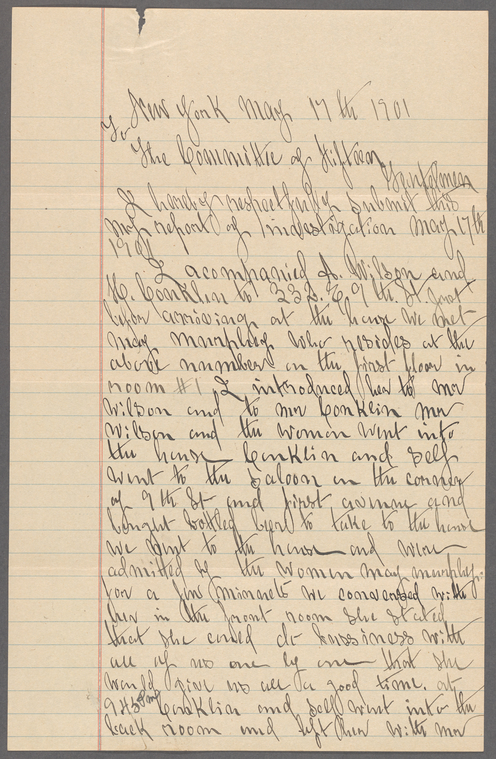 New York May 17th 1901
To
The Committee of Fifteen
Gentlemen
I hereby respectfully submit this
my report of investigation May 17th
1901
I acompanied A. Wilson and
H. Conklin to 332 E 9th St Just
befor arriving at the house we met
May Murphey who resides at the
above number on the first floor in
room #1 I introduced her to Mr
Wilson and to Mr Conklin Mr
Wilson and the women went into
the house Conklin and self
went to the saloon on the corner
of 9th St and first avenue and
bought bottled beer to take to the house
we went to the house and were
admitted by the women May Murphey.
for a few minuets we conversed with
her in the front room she stated
that she could do bussiness with
all of us one by one that she
would give us all a good time. at
9 45 PM Conklin and self went into the
back room and left her with Mr